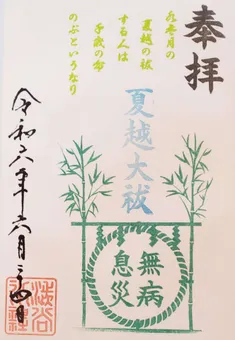 奉拝
水無月の
夏越の祓
する人は
千歳の命
のぶというなり
夏越大祓
無病
息災
令和六年六月
澁谷